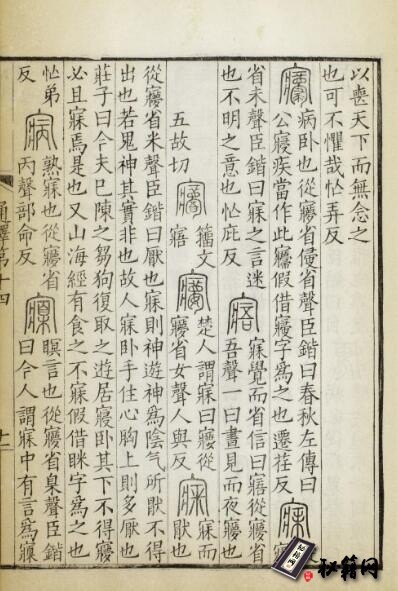 以喪天下而無念之
也可不懼哉忙弄反
㝲病卧也從㝱省㑴省聲臣鍇曰春秋左傳曰
公寢疾當作此㝲假借寢字爲之也遷荏反寐
省未聲臣鍇曰寐之言迷
也不明之意也忙庇反寤寐覺而省信曰寤從㝱省
吾聲一曰晝見而夜㝱也
五故切
籒文
寤
楚人謂寐曰㝱從
㝱省女聲人與反寐而
猒也
從㝱省米聲臣鍇曰厭也寐則神遊神爲陰气所猒不得
出也若鬼神其實非也故人寐卧手住心胸上則多厭也
莊子曰今夫巳陳之芻狗復取之遊居寢卧其下不得㝱
必且寐焉是也又山海經有食之不寐假借眯字爲之也
忙弟
反
㝥熟寐也從㝱省
丙聲部命反
寱瞑言也從㝱省臬聲臣鍇
曰今人謂寐中有言爲寱
通釋第十四
十一
秘籍网